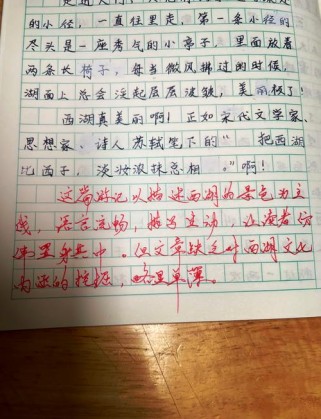 的小径，一直往里走，第一条小径的
尽头是一座秀气的小亭子，里面放着
两条长椅子，每当微风拂过的时候，
湖面上总会泛起层层波皱，美丽极了！
西湖真美丽啊！正如宋代文学家、
思想家、诗人苏轼笔下的“把西湖
比西子，淡妆浓抹总相。”啊！
这篇游记以描述西湖的景色为主
线，语言流畅，描写生动，让读者仿
佛置身其中。但文章缺乏对西湖文化
内涵的挖掘，略显单薄。